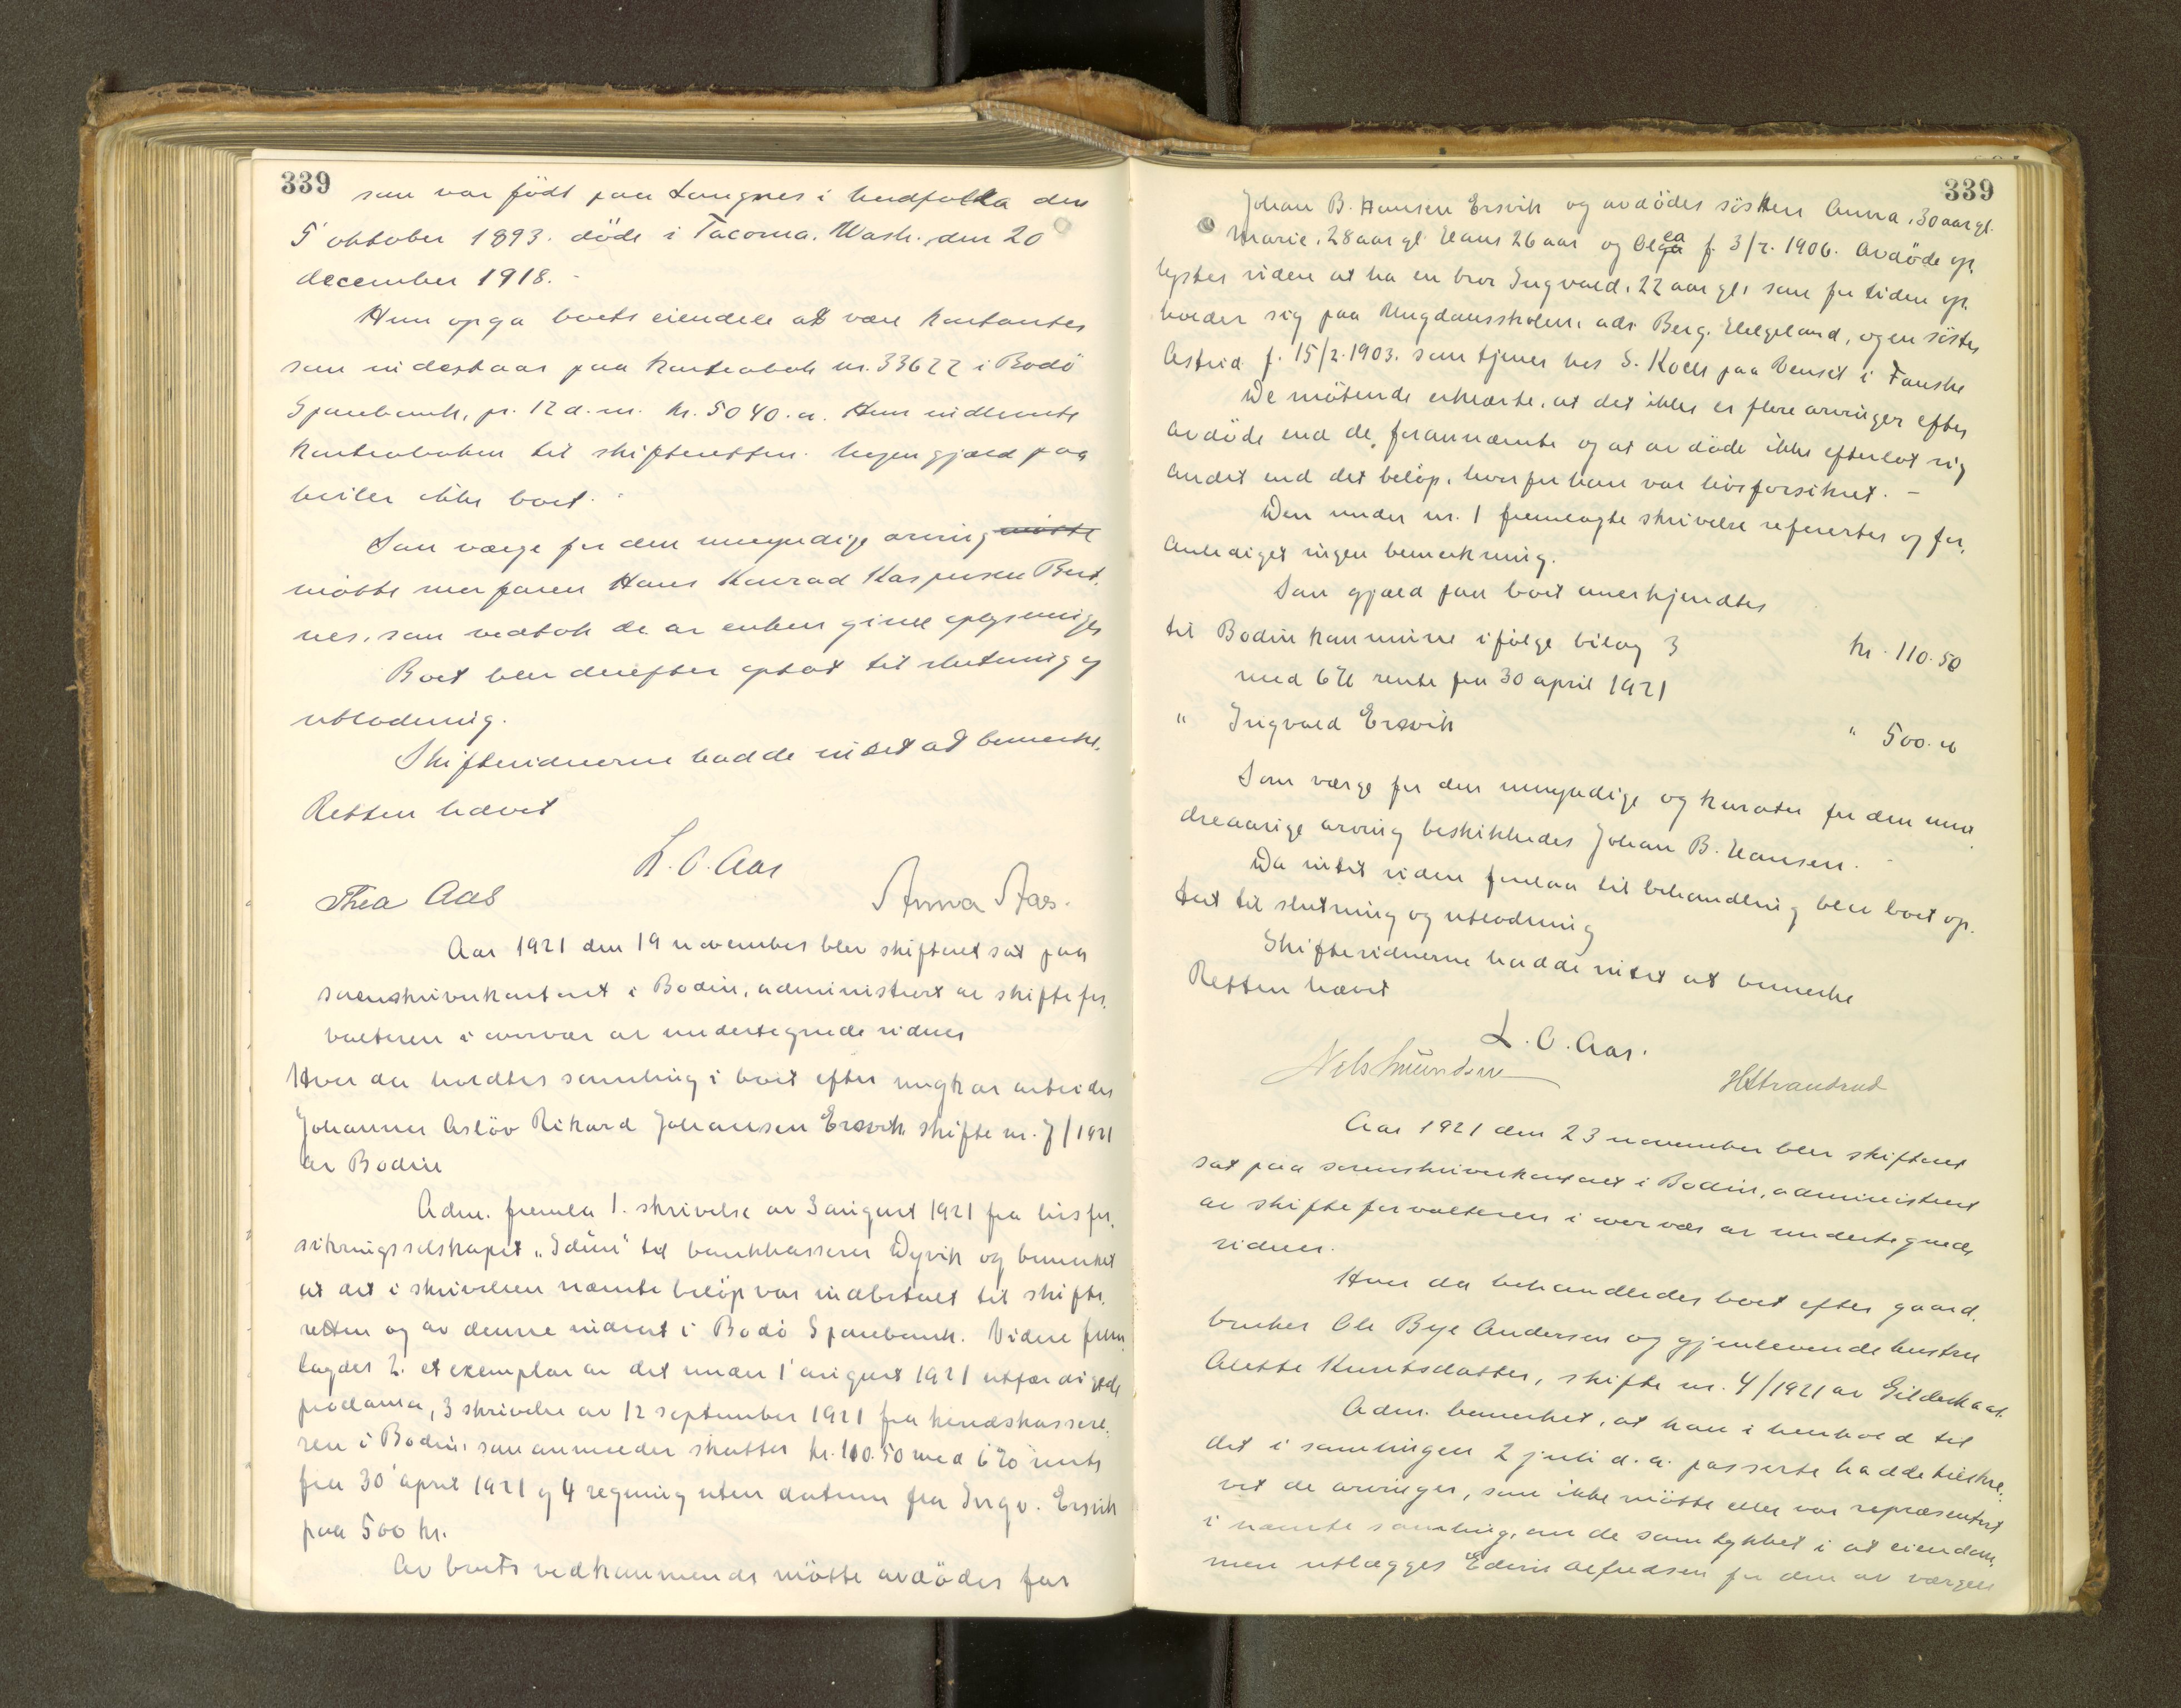 339
som var född paa Langnes i Nordfolda den
5' oktober 1893. döde i Tacoma. Wash. den 20
december 1918.-
Hun opga boets eiendele at være kontanter
som indestaar paa kontrabok nr. 33622 i Bodö
Sparebank, pr. 12 d.m. kr. 5040.a. Hun indlemte
kontraboken til skifteretten. Ingen gjæld paa
hviler ikke boet.
Som værge for den umyndige arving møtte
møtte morfaren Hans Konrad Kaspersen Bert,
nes, som vedtok de av enken givne oplysninger
Boet blev derefter optat til slutning og
utlodning.
Skiftevidnerne hadde intet at bemerke.
Retten hævet
L. O. Aas
Thea Aas
Anna Aas.
Aar 1921 den 19 november blev skifteret sat paa
sorenskriverkontoret i Bodin, administrert av skiftefor,
valteren i overvær av undertegnede vidner
Hvor da holdtes samling i boet efter ungkar arbeider
Johannes Asløv Rikard Johansen Ersvik skifte nr. 7/1921
av Bodin
Adm. fremla 1. skrivelse av 3 august 1921 fra livsfor,
sikringsselskapet „Idun" til bankkasserer Dyvik og bemerket
at det i skrivelsen nævnte beløp var indbetalt til skifte,
retten og av denne indsat i Bodö Sparebank. Videre frem
lagdes 2. et exemplar av det under 1' august 1921 utfærdigede
proclama, 3 skrivelse av 12 september 1921 fra herredskassere,
ren i Bodin, som anmelder skatter kr. 110.50 med 6% rente
fra 30' april 1921 og 4 regning uten datum fra Ingv. Ersvik
paa 500 kr.
Av boets vedkommende møtte avdødes far
339
Johan B. Hansen Ersvik og avdødes søsken Anna, 30 aar gl.
Marie, 28 aar gl. Hans 26 aar og Olga ea f. 3/2. 1906. Avdøde op,
lystes videre at ha en bror Ingvald, 22 aar gl, som for tiden op,
holder sig paa Ungdomsskolen, adr. Berg. Helgeland, og en søster
Astrid f. 15/2.1903. som tjener hos S. Koch paa Venset i Fauske
De møtende erklærte, at det ikke er flere arvinger efter
avdøde end de forannævnte og at avdøde ikke efterlot sig
andet end det beløp, hvorfor han var livsforsikret. -
Den under nr. 1 fremlagte skrivelse refertes og for,
anlediget ingen bemerkning.
Som gjæld paa boet anerkjendtes
til Bodin kommune ifølge bilag 3 kr. 110.50
med 6% rente fra 30 april 1921
" Ingvald Ersvik " 500.00
Som værge for den umyndige og kurator for den min
dreaarige arving beskikkedes Johan B. Hansen.
Da intet videre forelaa til behandling blev boet op,
tat til slutning og utlodning
Skiftevidnerne hadde intet at bemerke
Retten hævet
L. O. Aas.
HStrandrud
Aar 1921 den 23 november blev skifteret
sat paa sorenskriverkontoret i Bodin, administrert
av skifteforvalteren i overvær av undertegnede
vidner.
Hvor da behandledes boet efter gaard,
bruker Ole Bye Andersen og gjenlevende hustru
Alette Knutsdatter, skifte nr. 4/1921 av Gildeskaal.
Adm. bemerket, at han i henhold til
det i samlingen 2 juli d.a. passerte hadde tilskre,
vet de arvinger, som ikke møtte eller var repræsentert
i nævnte samling, om de samtykket i at eiendom,
men utlægges Edvin Alfredsen for den av værgen